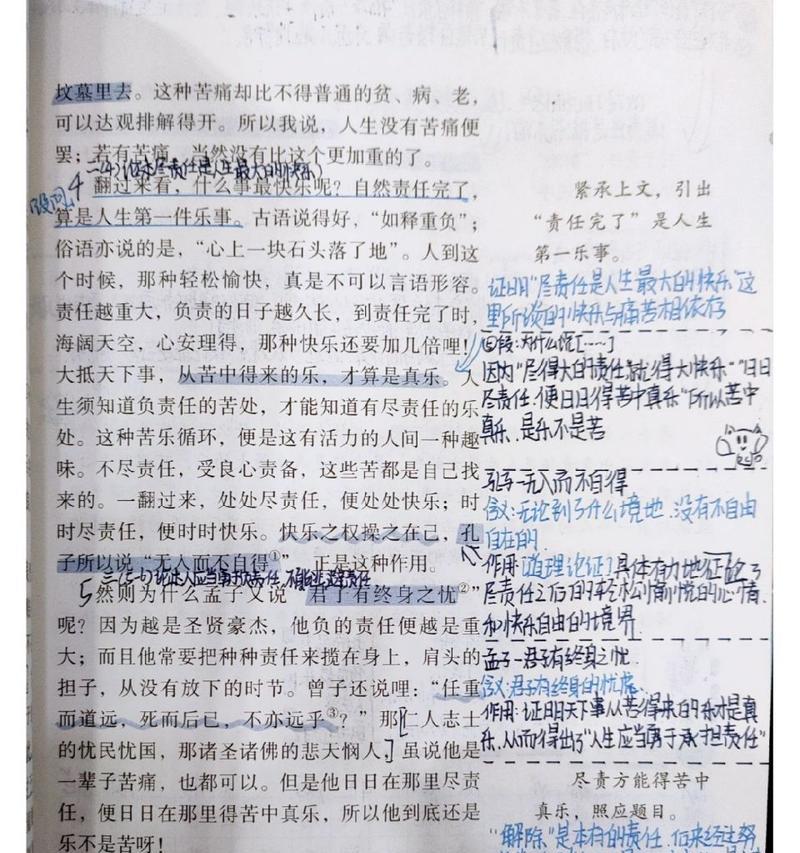 坟墓里去。这种苦痛却比不得普通的贫、病、老，
可以达观排解得开。所以我说，人生没有苦痛便
罢；若有苦痛，当然没有比这个更加重的了。
二(4)论述尽责任是人生最大的快乐
设问 4 翻过来看，什么事最快乐呢？自然责任完了，
算是人生第一件乐事。古语说得好，“如释重负”；
俗语亦说的是，“心上一块石头落了地”。人到这
个时候，那种轻松愉快，真是不可以言语形容。
责任越重大，负责的日子越久长，到责任完了时，
海阔天空，心安理得，那种快乐还要加几倍哩！
大抵天下事，从苦中得来的乐，才算是真乐。人
生须知道负责任的苦处，才能知道有尽责任的乐
处。这种苦乐循环，便是这有活力的人间一种趣
味。不尽责任，受良心责备，这些苦都是自己找
来的。一翻过来，处处尽责任，便处处快乐；时
时尽责任，便时时快乐。快乐之权操之在己，孔
子所以说“无入而不自得①”，正是这种作用。
论述人应当勇于负责任，不能逃避责任
5 然则为什么孟子又说“君子有终身之忧②”
呢？因为越是圣贤豪杰，他负的责任便越是重
大；而且他常要把种种责任来揽在身上，肩头的
担子，从没有放下的时节。曾子还说哩：“任重
而道远，死而后已，不亦远乎③？”那[仁人志士
的忧民忧国，那诸圣诸佛的悲天悯人，]虽说他是
一辈子苦痛，也都可以。但是他日日在那里尽责
任，便日日在那里得苦中真乐，所以他到底还是
乐不是苦呀！
紧承上文，引出
“责任完了”是人生
第一乐事。
证明“尽责任是人生最大的快乐”这
里所谈的快乐与痛苦相依存
回段:为什么说[……]
因为“尽得大的责任就得大快乐”“日日
尽责任，便日日得苦中真乐”所以苦中
真乐，是乐不是苦
孔子—无入而不自得
含义:无论到了什么境地，没有不自由
自在的
作用:道理论证，具体有力地证明了
尽责任之后的轻松愉悦的心情，
和快乐自由的境界
孟子—君子有终身之忧
含义:君子有终身的忧虑
作用:证明天下事从苦得来的乐才是真
乐，从而得出了“人生应当勇于承担责任”
尽责方能得苦中
真乐，照应题目。
“解除”是本有的责任，后来经过努